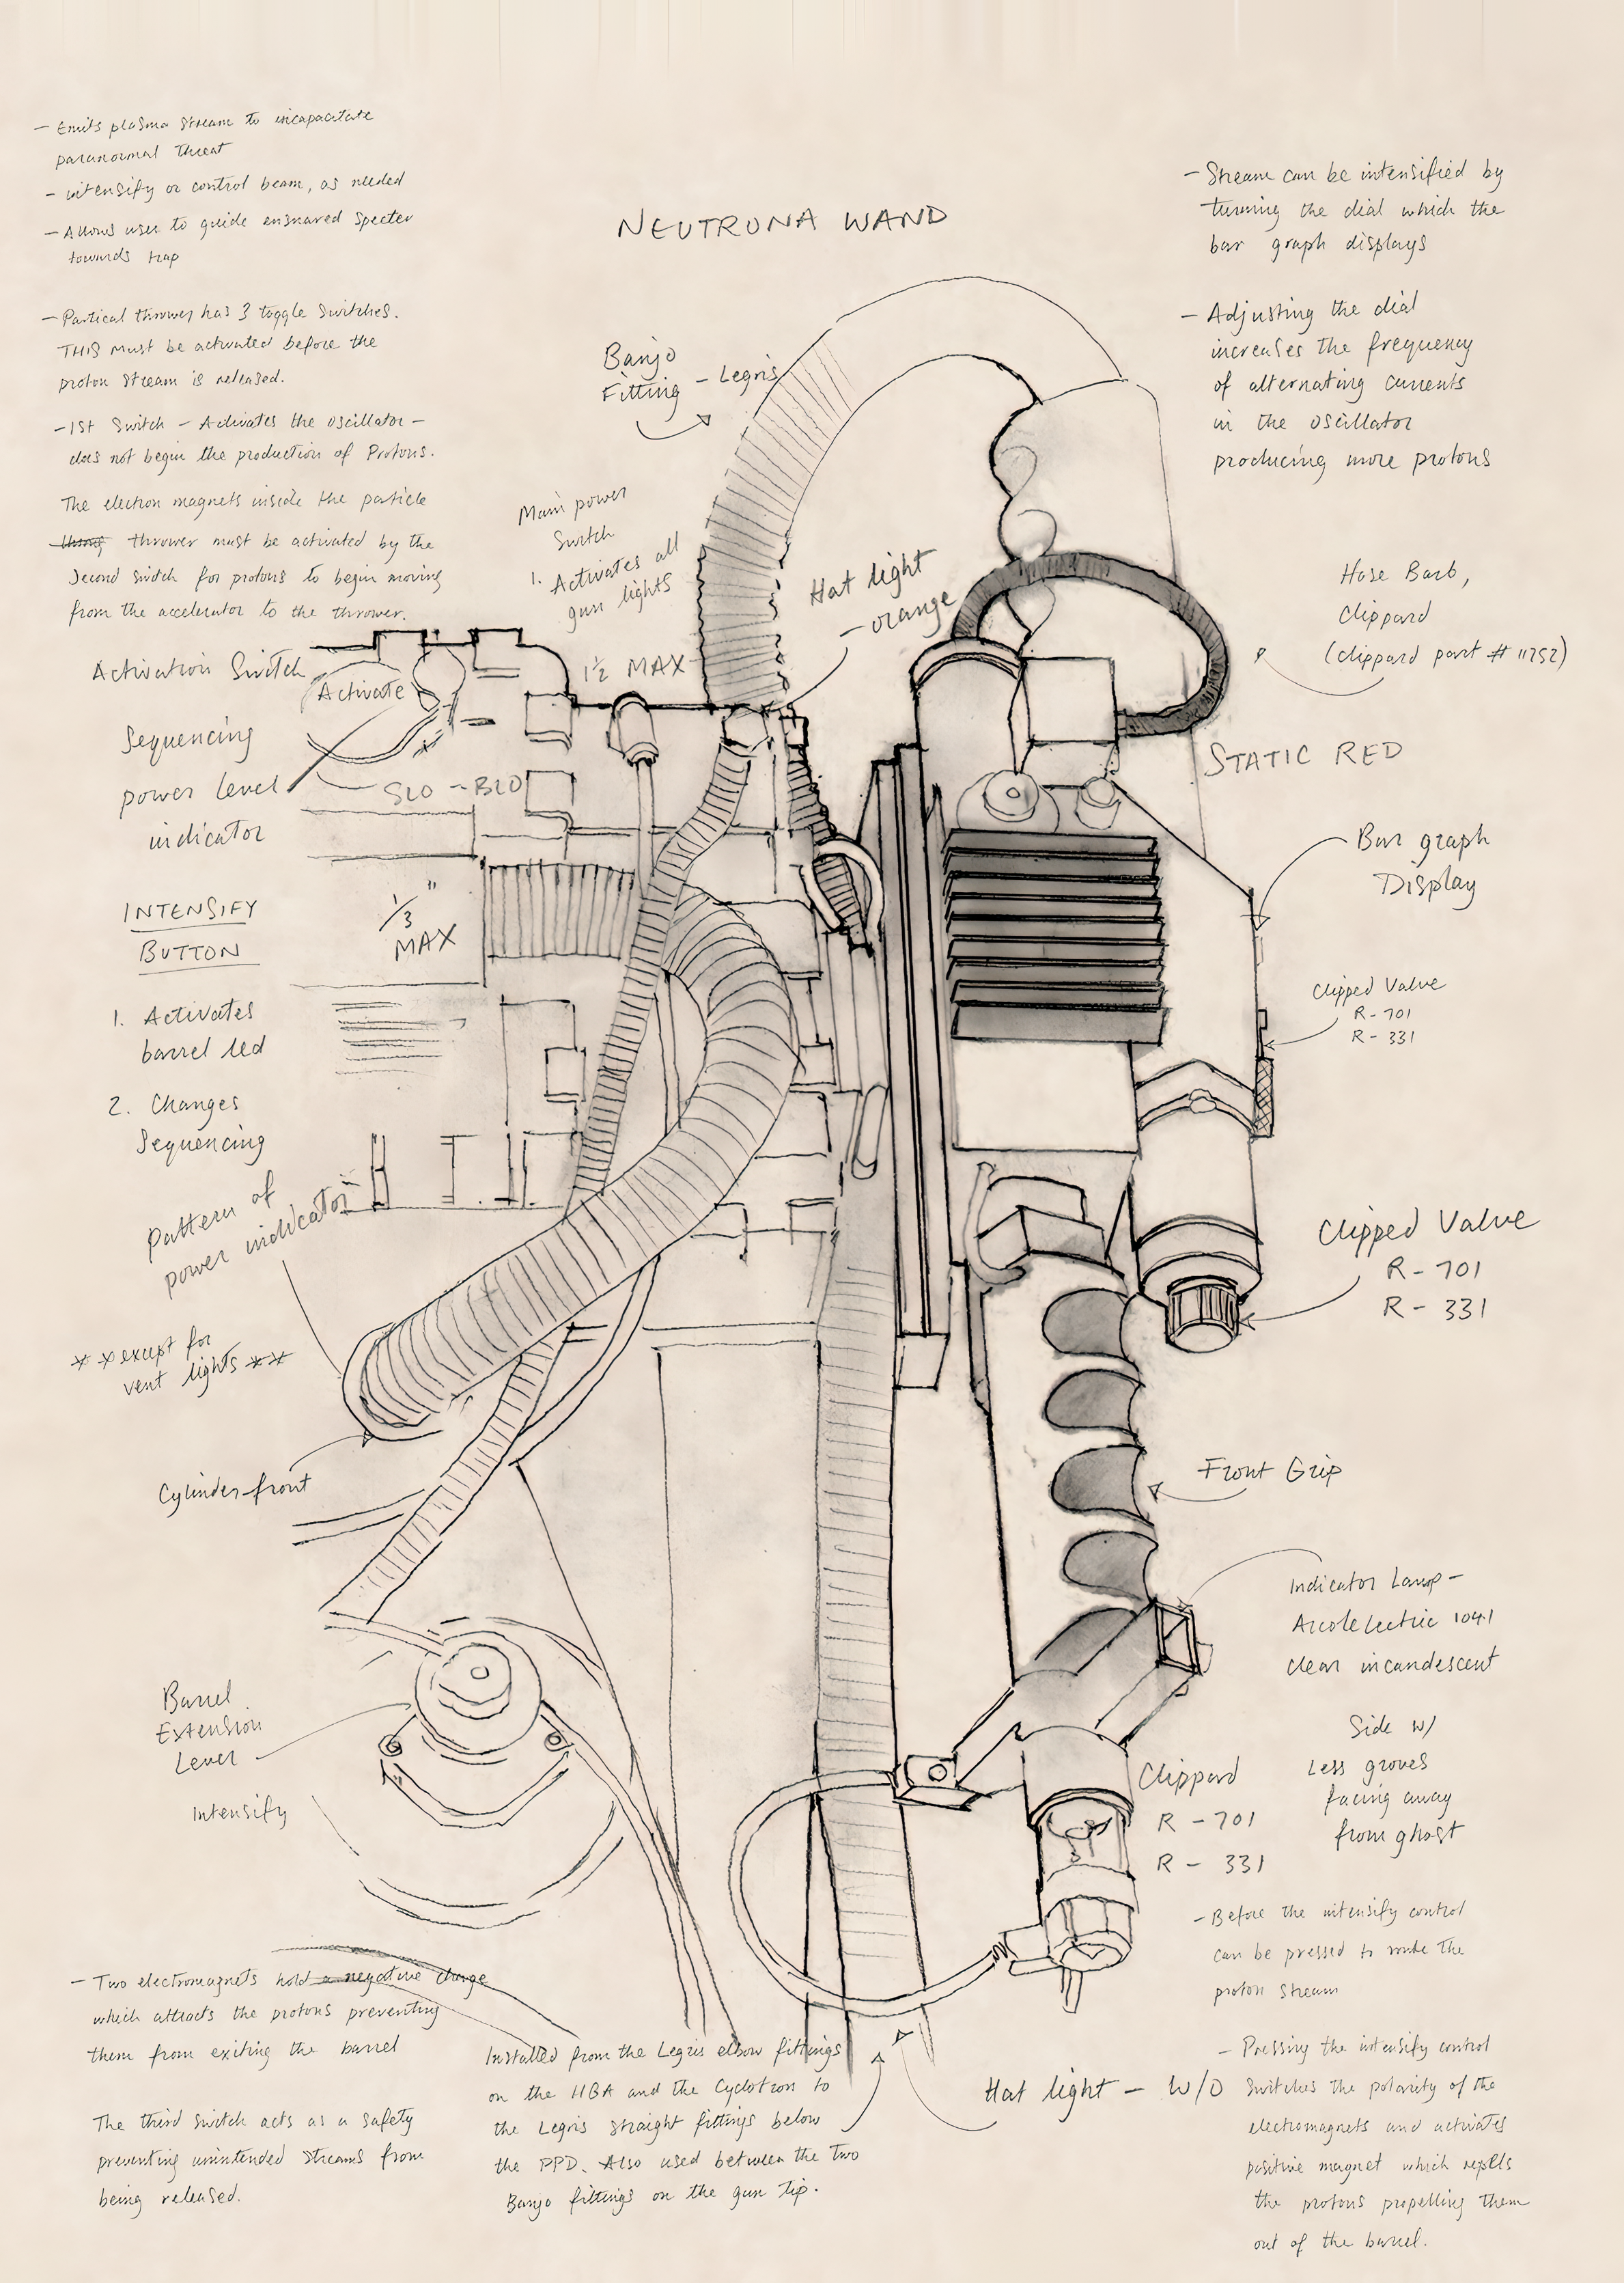 NEUTRONA WAND
- Emits plasma stream to incapacitate
paranormal threat
- intensify or control beam, as needed
- Allows user to guide ensnared specter
towards trap
- Partical thrower has 3 toggle switches.
THIS must be activated before the
proton stream is released.
- 1st Switch - Activates the oscillator -
does not begin the production of Protons.
The electron magnets inside the particle
thrower must be activated by the
second switch for protons to begin moving
from the accelerator to the thrower.
Activation Switch
Activate
Sequencing
power level
indicator
SLO - BLO
INTENSIFY
BUTTON
1/3"
MAX
1. Activates
barrel led
2. Changes
Sequencing
pattern of
power indicator
** except for
vent lights **
Cylinder front
Barrel
Extension
Lever
Intensify
- Two electromagnets hold a negative charge
which attracts the protons preventing
them from exiting the barrel
The third switch acts as a safety
preventing unintended streams from
being released.
Banjo
Fitting - Legris
Main power
Switch
1. Activates all
gun lights
1½ MAX
Hat light
- orange
Installed from the Legris elbow fittings
on the HGA and the Cyclotron to
the Legris straight fittings below
the PPD. Also used between the two
Banjo fittings on the gun tip.
- Stream can be intensified by
turning the dial which the
bar graph displays
- Adjusting the dial
increases the frequency
of alternating currents
in the oscillator
producing more protons
Hose Barb,
Clippard
(clippard part # 11752)
STATIC RED
Bar graph
Display
Clipped Valve
R - 701
R - 331
Clipped Valve
R - 701
R - 331
Front Grip
Indicator Lamp -
Arcolectric 1041
clear incandescent
Side w/
Less groves
facing away
from ghost
Clippard
R - 701
R - 331
- Before the intensify control
can be pressed to make the
proton stream
Hat light - W/O
- Pressing the intensify control
switches the polarity of the
electromagnets and activates
positive magnet which repells
the protons propelling them
out of the barrel.